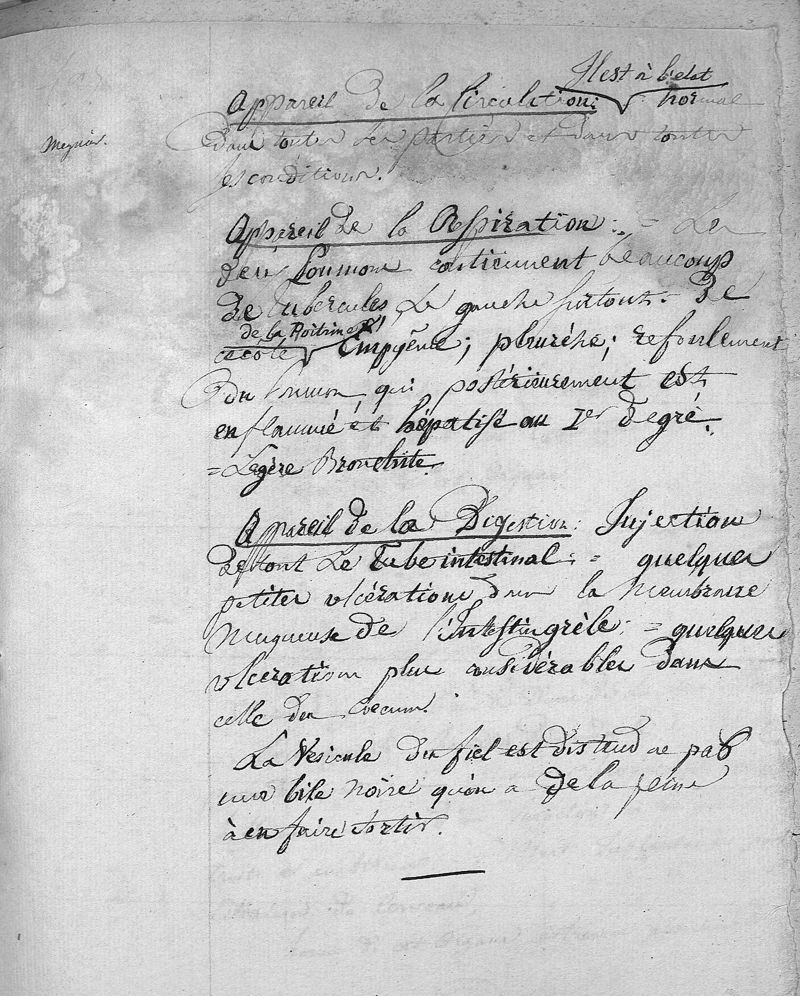 Il est à l'etat
Appareil de la Circulation: normal
Meynier.
dans toutes les parties et dans toutes
les conditions.
Appareil de la Respiration: = Les
deux Poumons contiennent beaucoup
de tubercules, Le gauche surtout = De
de la Poitrine
ce coté Empyême; pleurésie; refoulement
du Poumon qui postérieurement est
enflammé et hépatisé au Ier degré.
= Légère Bronchite.
Appareil de la Digestion: Injection
de tout Le Tube intestinal: = quelques
petites ulcérations dans la membrane
muqueuse de l'Intestin grèle: = quelques
ulcerations plus considérables dans
celle du Coecum.
La Vesicule du fiel est distendue par
une bile noire qu'on a de la peine
à en faire sortir.